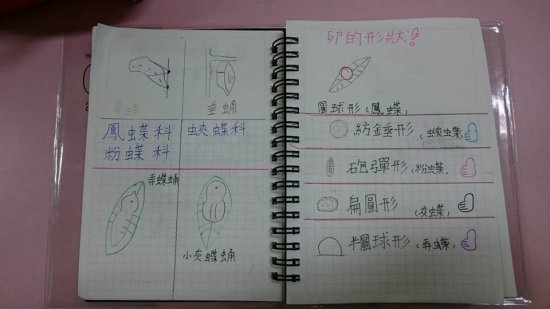 帶蛹
垂蛹
鳳蝶科
粉蝶科
蛺蝶科
弄蝶蛹
小灰蝶蛹
卵的形狀!
圓球形(鳳蝶)
紡錘形(蛺蝶)
砲彈形(粉蝶)
扁圓形(灰蝶)
半圓球形(弄蝶)